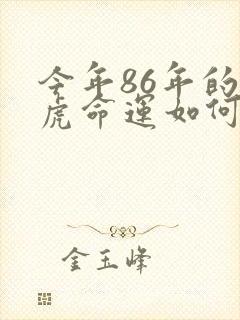 今年86年的
虎命运如何
金玉峰